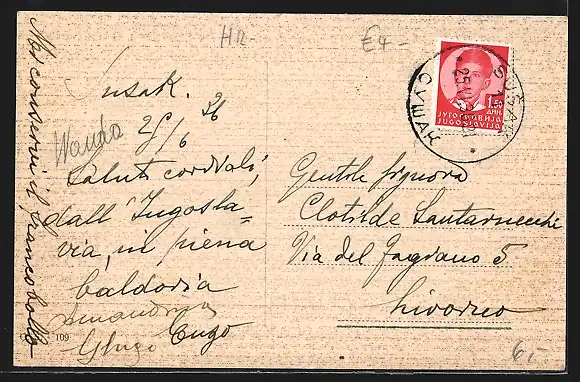 HR-
£4-
Mi conservi il francobollo
Susak.
25/6 36
Wanda
Saluti cordiali,
dall' Jugosla=
via, in piena
baldoria
Enzo
109
1.50
ДИН
ЈУГОСЛАВИЈА
JUGOSLAVIJA
SUŠAK
СУШАК
Gentile signora
Clotilde Santarnecchi
Via del Fagiano 5
Livorno
6,-